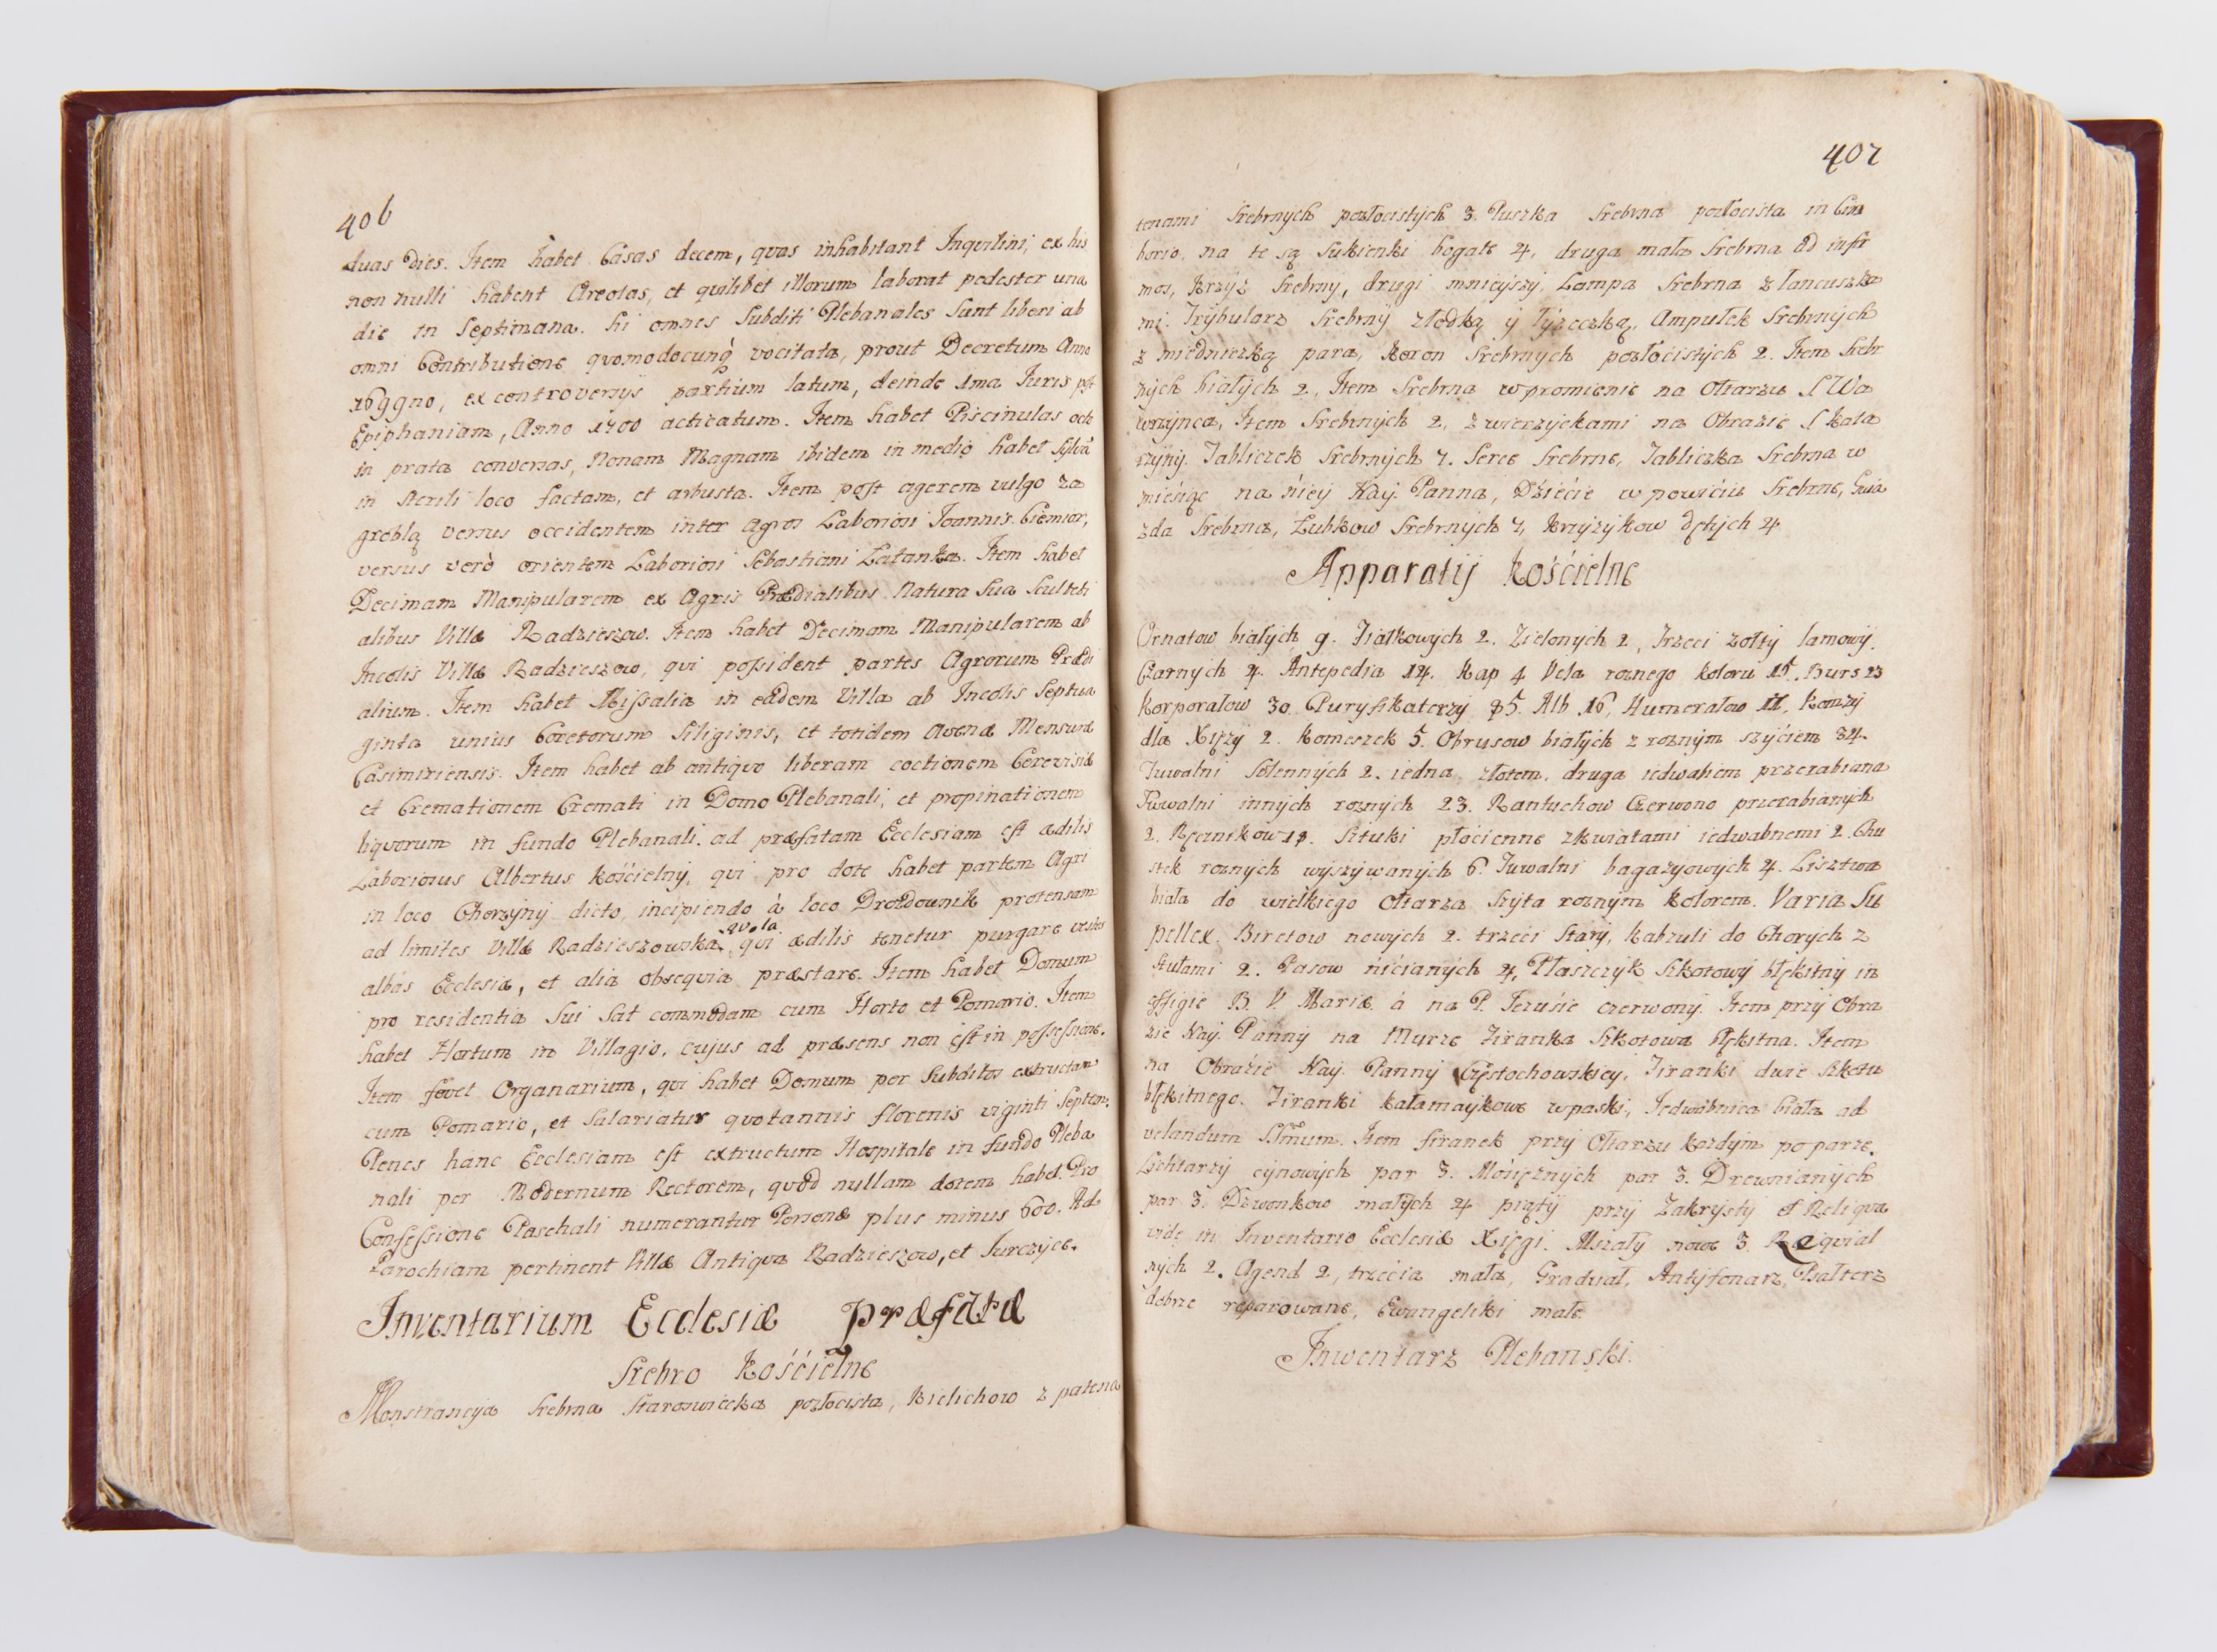 406
duas Dies. Item habet Casas decem, quas inhabitant Inquilini, ex his
non nulli habent Areolas, et quilibet illorum laborat pedester una
die in Septimana. Hi omnes Subditi Plebanales Sunt liberi ab
omni Contributione quomodocunq vocitata, prout Decretum Anno
1699no, ex controversijs partium latum, deinde 1ma Juris post
Epiphaniam, Anno 1700 acticatum. Item habet Piscinulas octo
in prata conversas, Nonam Magnam ibidem in medio habet Sylvã
in sterili loco factam, et arbusta. Item post agerem vulgo za
greblą versus occidentem inter agros Laboriosi Joannis Ciemior,
versus verò orientem Laboriosi Sebastiani Latanka. Item habet
Decimam Manipularem ex Agris Prædialibus Natura Sua Sculteti
alibus Villæ Radzieszow. Item habet Decimam Manipularem ab
Incolis Villæ Radzieszow, qui possident partes Agrorum Prædi
alium. Item habet Missalia in eadem Villa ab Incolis Septua
ginta unius Coretorum Siliginis, et totidem Avenæ Mensuræ
Casimiriensis. Item habet ab antiquo liberam coctionem Cerevisiæ
et Cremationem Cremati in Domo Plebanali, et propinationem
liquorum in fundo Plebanali. ad præfatam Ecclesiam est ædilis
Laboriosus Albertus kościelny, qui pro dote habet partem Agri
in loco Chorzyny dicto, incipiendo à loco Drozdownik protensam
ad limites Villæ Radzieszowska, qui ædilis tenetur purgare vestes
albas Ecclesiæ, et alia obsequia præstare. Item habet Domum
pro residentia Sui Sat commodam cum Horto et Pomario. Item
habet Hortum in Villagio, cujus ad præsens non est in possessione.
Item fovet Organarium, qui habet Domum per Subditos extructam
cum Pomario, et Salariatur quotannis florenis viginti Septem.
Penes hanc Ecclesiam est extructum Hospitale in fundo Pleba
nali per Modernum Rectorem, quod nullam dotem habet. Pro
Confessione Paschali numerantur Personæ plus minus 600. Ad
Parochiam pertinent Villæ Antiqua Radzieszow, et Jurczyce.
Inventarium Ecclesiæ præfatæ
Srebro kościelne
Monstrancya Srebrna Staroswiecka pozłocista, Kielichow z patena
407
tenami Srebrnych pozłocistych 3. Puszka Srebrna pozłocista in Cim
borio, na te są Sukienki bogate 4, druga mała Srebrna ad infir
mos, krzyż Srebrny, drugi mnieyszy. Lampa Srebrna z łancuszka
mi. Trybularz Srebrny z łodką y łyżeczką, Ampułek Srebrnych
z miedniczką para, koron Srebrnych pozłocistych 2. Item Srebr
nych białych 2, Item Srebrna w promienie na Ołtarzu S Wa
wrzynca, Item Srebrnych 2, z wierzyckami na Obrazie S kata
rzyny. Tabliczek Srebrnych 7. Serce Srebrne, Tabliczka Srebrna w
mieśiąc na niey Nay. Panna, Dziecie w powiciu Srebrne, Gwia
zda Srebrna, Lubkow Srebrnych 7, krzyżykow dętych 4
Apparaty kościelne
Ornatow białych 9. Fiałkowych 2. Zielonych 2, Trzeci zołty lamowy.
Czarnych 4. Antepedia 14. kap 4 Vela roznego koloru 15. Burs 23
korporałow 30. Puryfikaterzy 85. Alb 16, Humerałow 11, komży
dla Xięży 2. komeszek 5. Obrusow białych z roznym szyćiem 34.
Tuwalni Solennych 2. iedna złotem, druga iedwabiem przerabiana
Tuwalni innych roznych 23. Rantuchow Czerwono przerabianych
2. Ręcznikow 18. Sztuki płocienne z kwiatami iedwabnemi 2. Chu
stek roznych wyszywanych 6. Tuwalni bagazyowych 4. Lisztwa
biała do wielkiego ołtarza Szyta roznym kolorem. Varia Su
pellex. Biretow nowych 2. trzeci Stary, kabzuli do Chorych z
Stułami 2. Pasow nićianych 4, Płaszczyk Szkotowy błękitny in
effigie B. V. Mariæ á na P. Jezuśie czerwony. Item przy Obra
zie Nay. Panny na Murze Firanka Szkotowa błękitna. Item
na Obraźie Nay. Panny Częstochowskiey, Firanki dwie Szkotu
błękitnego. Firanki kałamaykowe w paski, Jedwabnica biała ad
velandum SSmum. Item firanek przy Ołtarzu kozdym po parze.
Lichtarzy cynowych par 3. Mosiężnych par 3. Drewnianych
par 3. Dzwonkow małych 4 piąty przy Zakrysty et Reliqua
vide in Inventario Ecclesiæ Xięgi. Mszały nowe 3. Requial
nych 2. Agend 2, trzecia mała, Graduał, Antyfonarz, Psałterz
dobrze reparowane, Ewangeliki małe.
Inwentarz Plebanski.